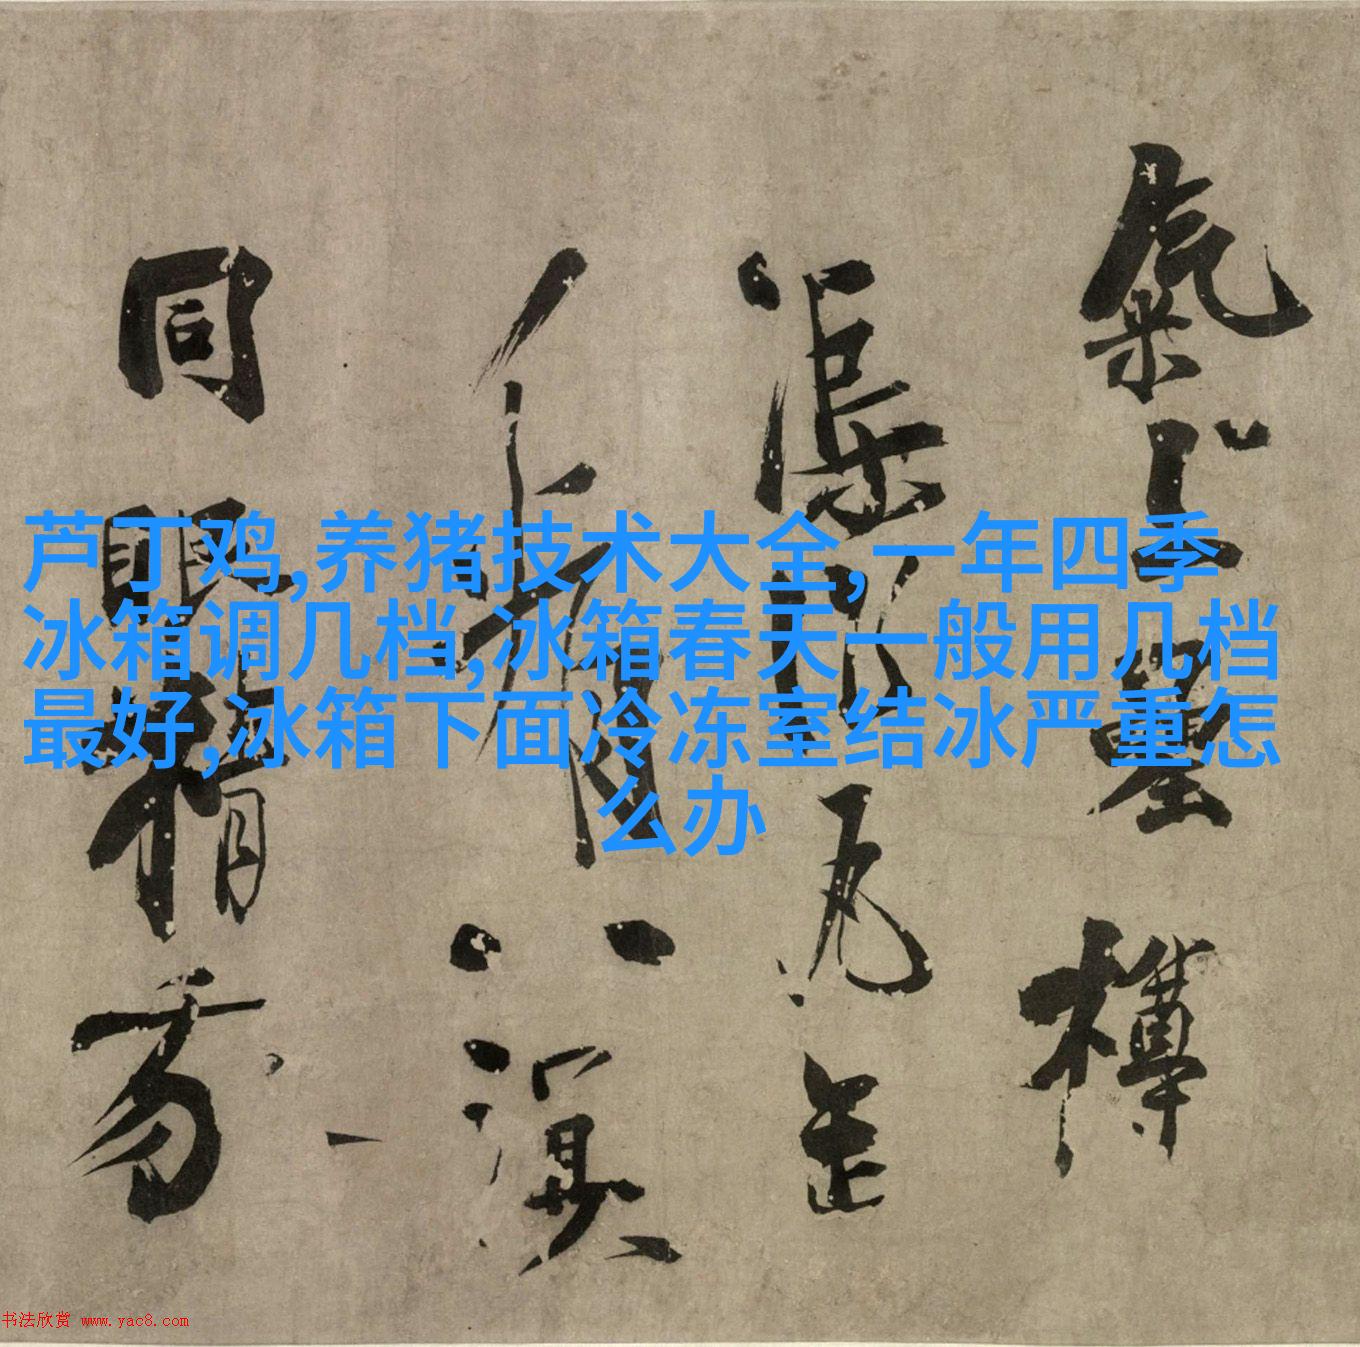 芦丁鸡,养猪技术大全,一年四季
冰箱调几档,冰箱春天一般用几档
最好,冰箱下面冷冻室结冰严重怎
么办
氣上星樽
渠
八溟
同眼
书法欣赏 www.yac8.com